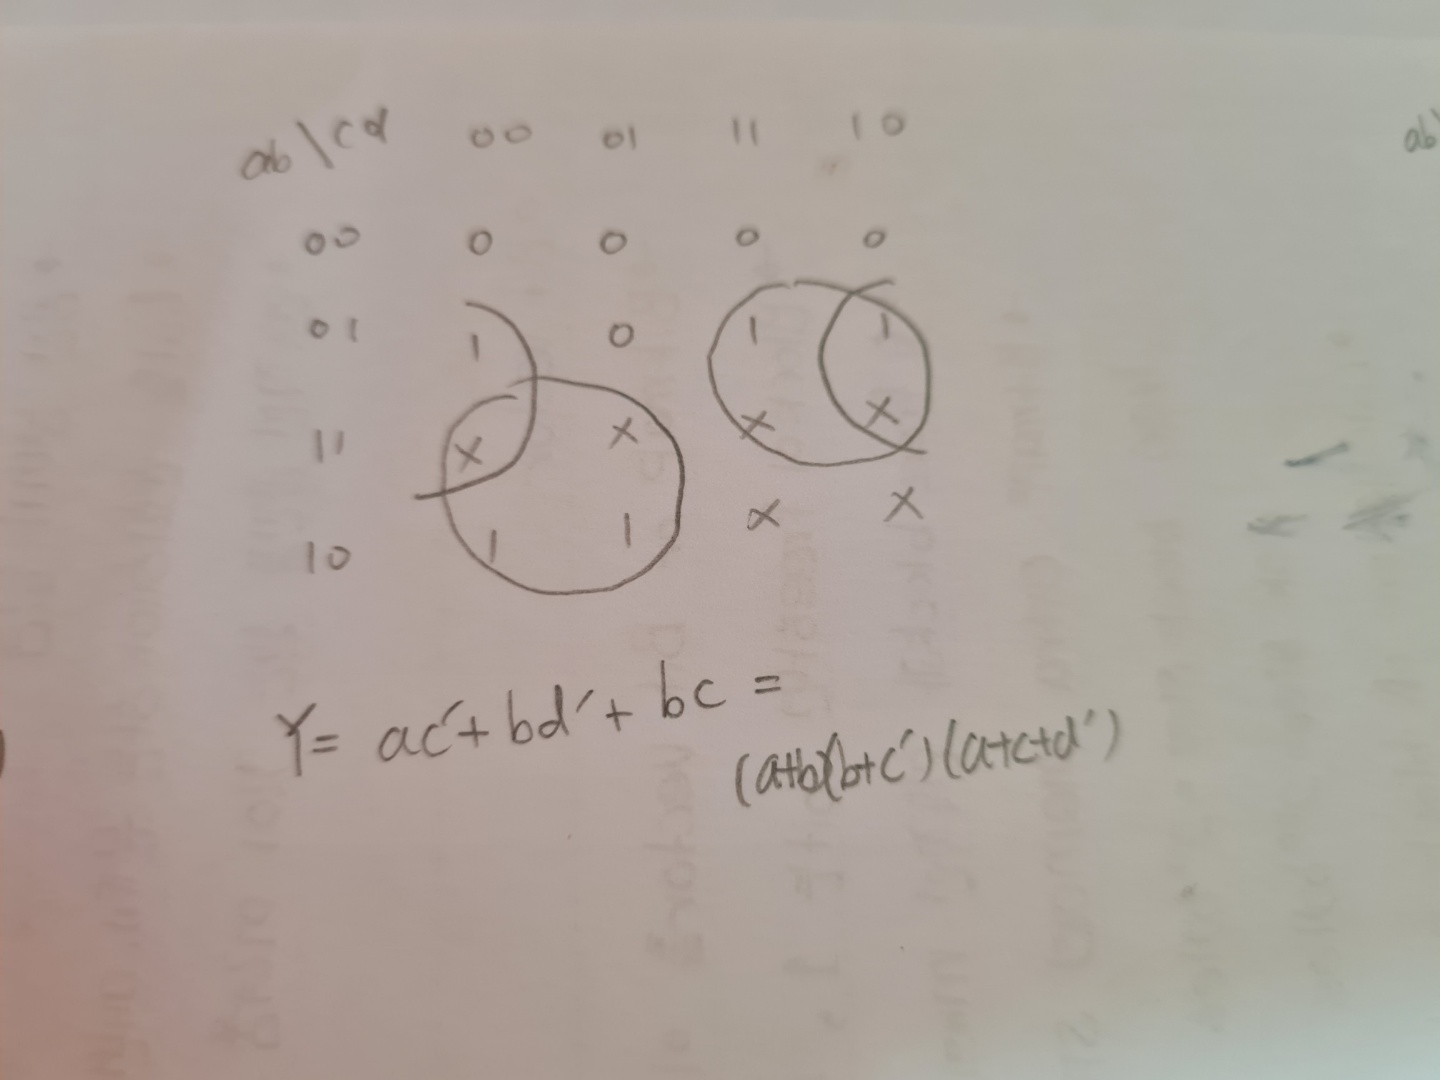 ab\cd 00 01 11 10
00 0 0 0 0
01 1 0 1 1
11 x x x x
10 1 1 x x
Y= ac'+ bd'+ bc =
(a+b)(b+c')(a+c+d')
ab\